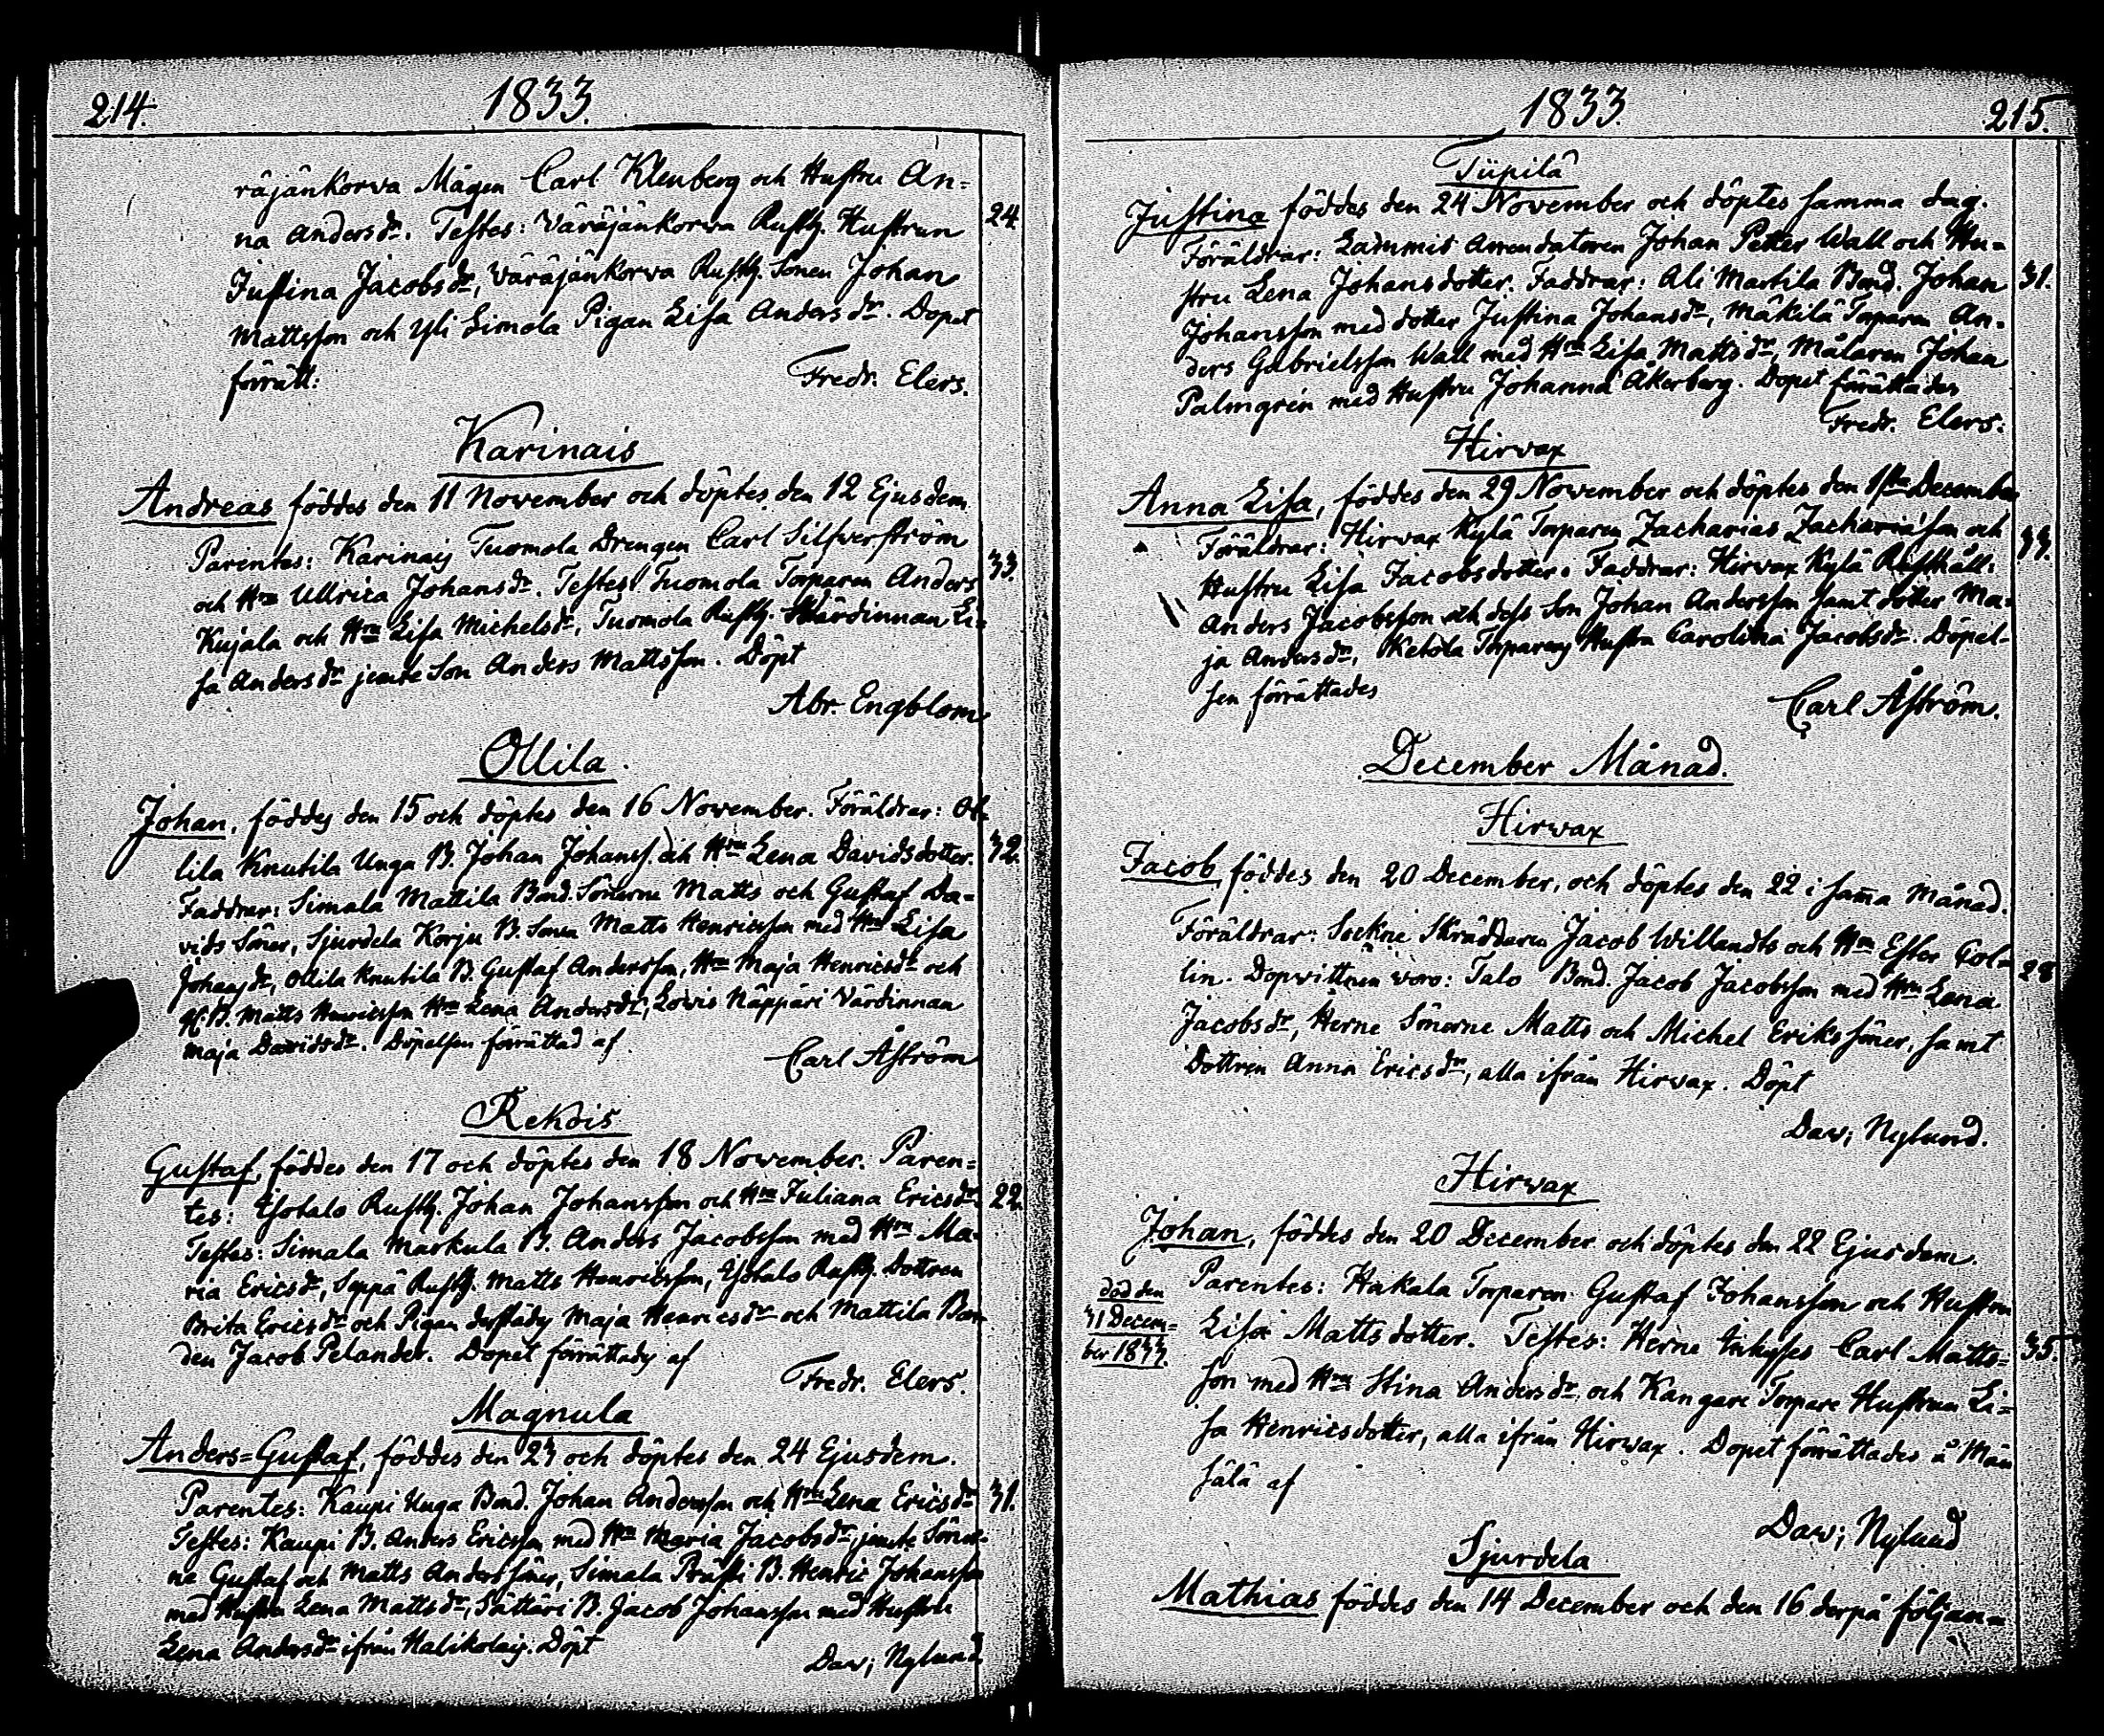 214.
1833.
räjänkorva Mågen Carl Klenberg och Hustru An=
na Andersdr. Testes: Väräjänkorwa Rusth. Hustrun
24
Justina Jacobsdr, Väräjänkorva Rusth. Sonen Johan
Mattsson och Yli Simola Pigan Lisa Andersdr. Dopet
förrätt:
Fredr. Elers.
Karinais
Andreas föddes den 11 November och döptes den 12 Ejusdem
Parentes: Karinais Tuomola Drengen Carl Silfwerström
33.
och Hru Ullrica Johansdr. Testes Tuomola Torparen Anders
Kujala och Hru Lisa Michelsdr, Tuomola Rusth. Wärdinnan Li=
sa Andersdr jemte Son Anders Mattsson. Döpt
Abr. Engblom
Ollila.
Johan, föddes den 15 och döptes den 16 November. Föräldrar: Ol=
lila Knutila Unga B. Johan Johanss. och Hru Lena Davidsdotter.
32.
Faddrar: Simala Mattila Bond. Sönerne Matts och Gustaf Da=
vids Söner, Sjurdela Korju B. Sonen Matts Henricsson med Hru Lisa
Johansdr, Ollila Knutila B. Gustaf Andersson, Hru Maja Henricsdr och
B. Matts Henricsson Hru Lena Andersdr, Lowis Näppäri Värdinnan
Maja Davidsdr. Döpelsen förrättad af
Carl Åström
Rekois
Gustaf, föddes den 17 och döptes den 18 November. Paren=
tes: Ysotalo Rusth. Johan Johansson och Hru Juliana Ericsdr
22.
Testes: Simala Markula B. Anders Jacobsson med Hru Ma=
ria Ericsdr, Seppä Rusth. Matts Henricsson, Rusth. Dottren
Brita Ericsdr och Pigan dystädes Maja Henricsdr och Mattila Bon=
den Jacob Pelander. Dopet förrättades af
Fredr. Elers.
Magnula
Anders=Gustaf, föddes den 23 och döptes den 24 Ejusdem.
Parentes: Kaupi Unga Bond. Johan Andersson och Hru Lena Ericsdr
31.
Testes: Kaupi B. Anders Ericsson med Hru Maria Jacobsdr jemte Söner=
ne Gustaf och Matts Anders Söner, Simala B. Henric Johansson
med Hustru Lena Mattsdr, Sättäri B. Jacob Johansson med Hustru
Lena Andersdr ifrån Halikolais. Döpt
Daw; Nylund.
1833.
215.
Tüpilä
Justina föddes den 24 November och döptes samma dag.
Föräldrar: Ladumis Arrendatoren Johan Petter Wall och Hu=
stru Lena Johansdotter. Faddrar: Ali Martila Bond. Johan
31.
Johansson med dotter Justina Johansdr, Mäkilä Torparen An=
ders Gabrielsson Wall med Hru Lisa Mattsdr, Målaren Johan
Palmgrén med Hustru Johanna Åkerberg. Dopet förrättades
Fredr. Elers.
Hirvax
Anna Lisa, föddes den 29 November och döptes den 1ste December
Föräldrar: Hirvax Kylä Torparen Zacharias Zachariæson och
33.
Hustru Lisa Jacobsdotter. Faddrar: Hirvax Kylä Rusthåll.
Anders Jacobsson och dess Son Johan Andersson samt dotter Ma=
ja Andersdr, Ketola Torparens Hustru Carolina Jacobsdr. Döpel=
sen förrättades
Carl Åström.
December Månad.
Hirwax
Jacob, föddes den 20 December, och döptes den 22 i sama Månad.
Föräldrar: Sockne Skräddaren Jacob Willandts och Hru Ester Col=
lin. Dopvittnen woro: Talo Bond. Jacob Jacobsson med Hru Lena
28
Jacobsdr, Herne Sönerne Matts och Michel Eriks söner, samt
Dottren Anna Ericsdr, alla ifrån Hirvax. Döpt
Daw; Nylund.
Hirwax
Johan, föddes den 20 December och döptes den 22 Ejusdem.
död den
31 Decem=
ber 1833.
Parentes: Hakala Torparen Gustaf Johansson och Hustru
Lisa Mattsdotter. Testes: Herne Inhyses Carl Matts=
35.
son med Hru Stina Andersdr, och Kangare Torpare Hustrun Li=
sa Henricsdotter, alla ifrån Hirvax. Dopet förrättades å Män
sälä af
Daw; Nylund
Sjurdela
Mathias föddes den 14 December och den 16 derpå följan=